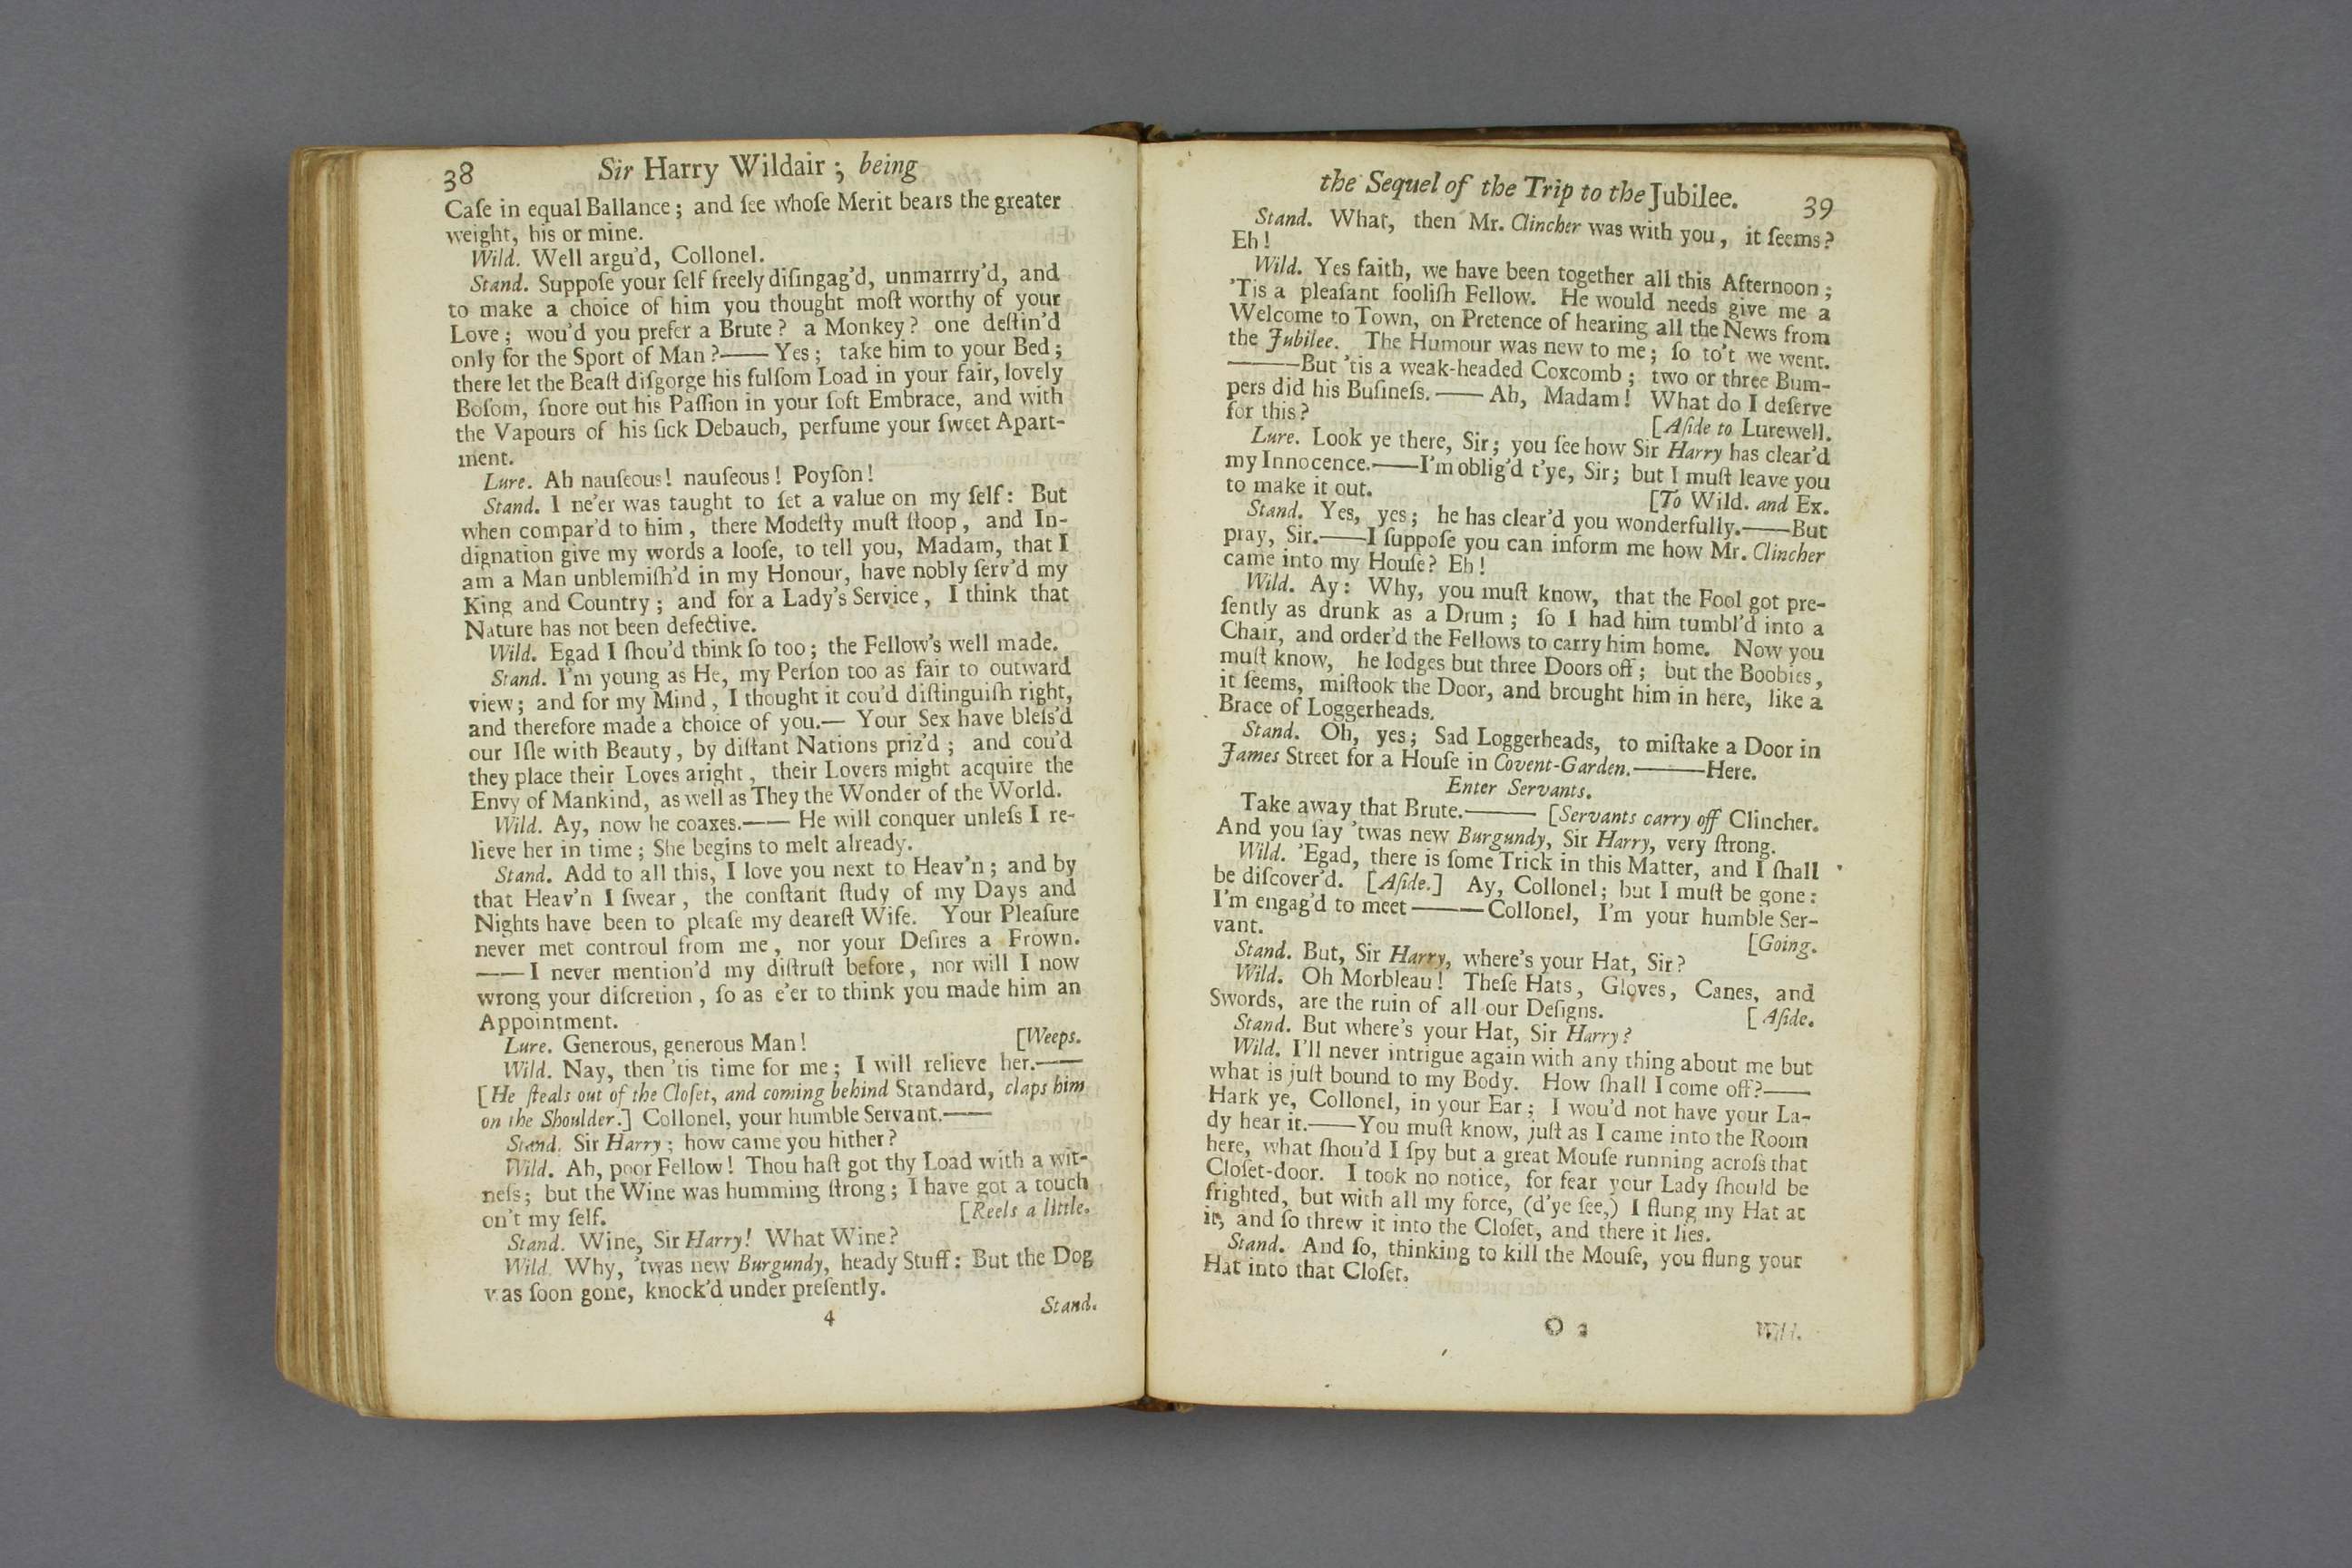 38 Sir Harry Wildair ; being
Caſe in equal Ballance ; and ſee whoſe Merit bears the greater
weight, his or mine.
Wild. Well argu'd, Collonel.
Stand. Suppoſe your ſelf freely diſingag'd, unmarrry'd, and
to make a choice of him you thought moſt worthy of your
Love ; wou'd you prefer a Brute ? a Monkey ? one deſtin'd
only for the Sport of Man ?—— Yes ; take him to your Bed ;
there let the Beaſt diſgorge his fulſom Load in your fair, lovely
Boſom, ſnore out his Paſſion in your ſoft Embrace, and with
the Vapours of his ſick Debauch, perfume your ſweet Apart-
ment.
Lure. Ah nauſeous ! nauſeous ! Poyſon !
Stand. I ne'er was taught to ſet a value on my ſelf : But
when compar'd to him , there Modeſty muſt ſtoop , and In-
dignation give my words a looſe, to tell you, Madam, that I
am a Man unblemiſh'd in my Honour, have nobly ſerv'd my
King and Country ; and for a Lady's Service , I think that
Nature has not been defective.
Wild. Egad I ſhou'd think ſo too ; the Fellow's well made.
Stand. I'm young as He, my Perſon too as fair to outward
view ; and for my Mind , I thought it cou'd diſtinguiſh right,
and therefore made a choice of you.— Your Sex have bleſs'd
our Iſle with Beauty , by diſtant Nations priz'd ; and cou'd
they place their Loves aright , their Lovers might acquire the
Envy of Mankind, as well as They the Wonder of the World.
Wild. Ay, now he coaxes.—— He will conquer unleſs I re-
lieve her in time ; She begins to melt already.
Stand. Add to all this, I love you next to Heav'n ; and by
that Heav'n I ſwear , the conſtant ſtudy of my Days and
Nights have been to pleaſe my deareſt Wife. Your Pleaſure
never met controul from me , nor your Deſires a Frown.
——I never mention'd my diſtruſt before , nor will I now
wrong your diſcretion , ſo as e'er to think you made him an
Appointment.
Lure. Generous, generous Man ! [Weeps.
Wild. Nay, then 'tis time for me ; I will relieve her.——
[He ſteals out of the Cloſet, and coming behind Standard, claps him
on the Shoulder.] Collonel, your humble Servant.——
Stand. Sir Harry ; how came you hither ?
Wild. Ah, poor Fellow ! Thou haſt got thy Load with a wit-
neſs ; but the Wine was humming ſtrong ; I have got a touch
on't my ſelf. [Reels a little.
Stand. Wine, Sir Harry ! What Wine ?
Wild. Why, 'twas new Burgundy, heady Stuff : But the Dog
was ſoon gone, knock'd under preſently.
4 Stand.
the Sequel of the Trip to the Jubilee. 39
Stand. What, then Mr. Clincher was with you , it ſeems ?
Eh !
Wild. Yes faith, we have been together all this Afternoon ;
'Tis a pleaſant fooliſh Fellow. He would needs give me a
Welcome to Town, on Pretence of hearing all the News from
the Jubilee. The Humour was new to me ; ſo to't we went.
———But 'tis a weak-headed Coxcomb ; two or three Bum-
pers did his Buſineſs.—— Ah, Madam ! What do I deſerve
for this ? [Aſide to Lurewell.
Lure. Look ye there, Sir ; you ſee how Sir Harry has clear'd
my Innocence.——I'm oblig'd t'ye, Sir ; but I muſt leave you
to make it out. [To Wild. and Ex.
Stand. Yes, yes ; he has clear'd you wonderfully.——But
pray, Sir.——I ſuppoſe you can inform me how Mr. Clincher
came into my Houſe ? Eh !
Wild. Ay : Why, you muſt know, that the Fool got pre-
ſently as drunk as a Drum ; ſo I had him tumbl'd into a
Chair, and order'd the Fellows to carry him home. Now you
muſt know, he lodges but three Doors off ; but the Boobies ,
it ſeems, miſtook the Door, and brought him in here, like a
Brace of Loggerheads.
Stand. Oh, yes ; Sad Loggerheads, to miſtake a Door in
James Street for a Houſe in Covent-Garden.———Here.
Enter Servants.
Take away that Brute.——— [Servants carry off Clincher.
And you ſay 'twas new Burgundy, Sir Harry, very ſtrong.
Wild. 'Egad, there is ſome Trick in this Matter, and I ſhall
be diſcover'd. [Aſide.] Ay, Collonel ; but I muſt be gone :
I'm engag'd to meet———Collonel, I'm your humble Ser-
vant. [Going.
Stand. But, Sir Harry, where's your Hat, Sir ?
Wild. Oh Morbleau ! Theſe Hats , Gloves, Canes, and
Swords, are the ruin of all our Deſigns. [Aſide.
Stand. But where's your Hat, Sir Harry ?
Wild. I'll never intrigue again with any thing about me but
what is juſt bound to my Body. How ſhall I come off ?——
Hark ye, Collonel, in your Ear ; I wou'd not have your La-
dy hear it.——You muſt know, juſt as I came into the Room
here, what ſhou'd I ſpy but a great Mouſe running acroſs that
Cloſet-door. I took no notice, for fear your Lady ſhould be
frighted, but with all my force, (d'ye ſee,) I flung my Hat at
it, and ſo threw it into the Cloſet, and there it lies.
Stand. And ſo, thinking to kill the Mouſe, you flung your
Hat into that Cloſet.
O 2 Wild.